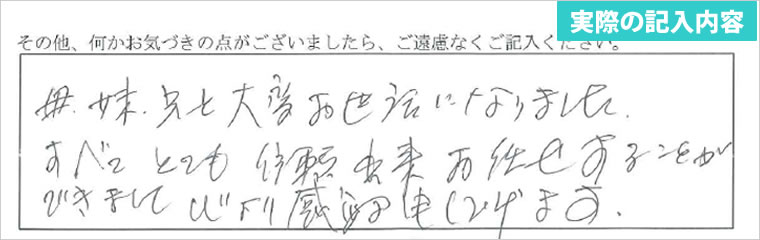 実際の記入内容
その他、何かお気づきの点がございましたら、ご遠慮なくご記入ください。
母、妹、兄と大変お世話になりました。
すべてとても信頼出来お任せすることが
できまして心より感謝申し上げます。